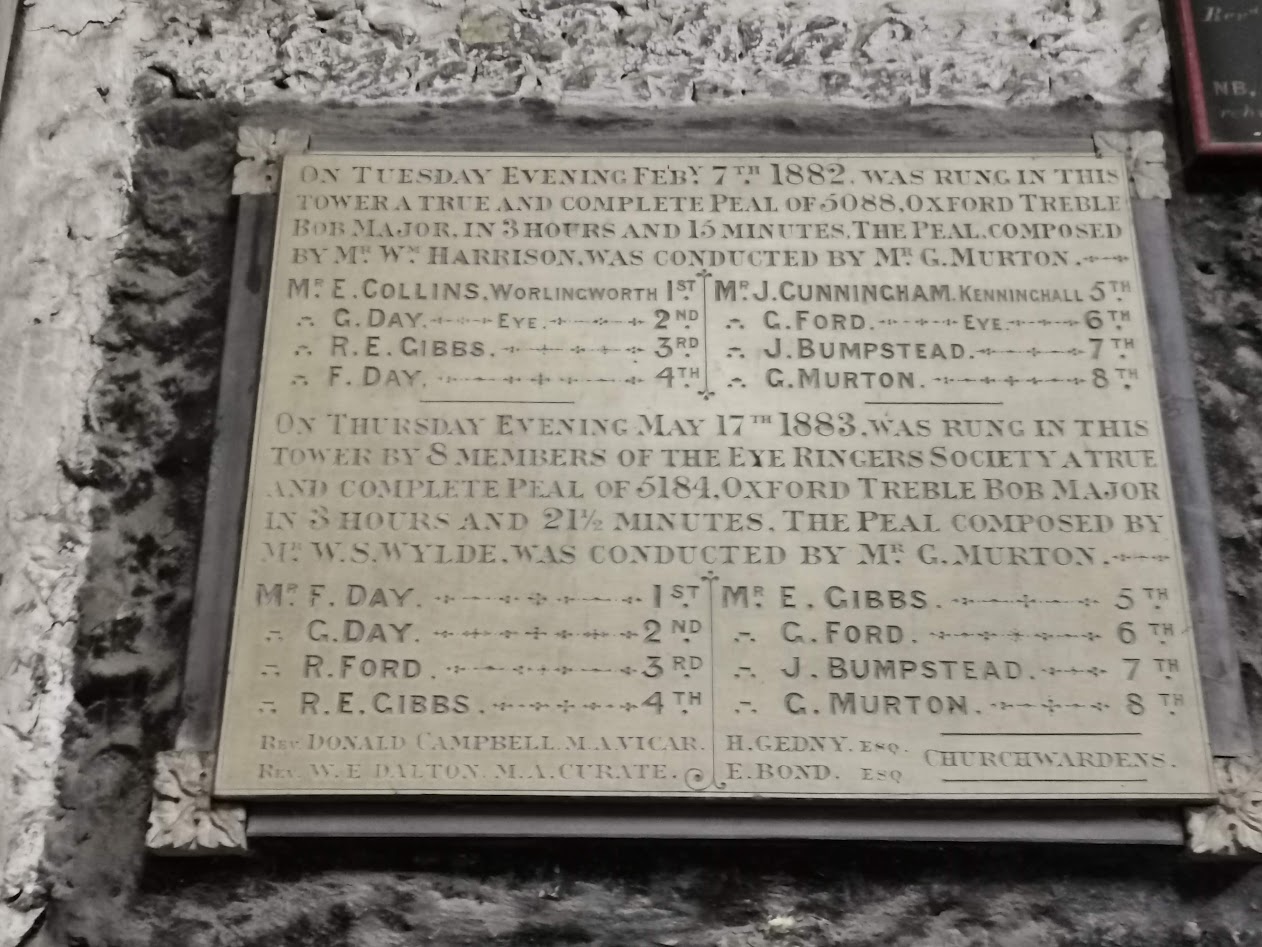 ON TUESDAY EVENING FEBY. 7TH 1882. WAS RUNG IN THIS
TOWER A TRUE AND COMPLETE PEAL OF 5088, OXFORD TREBLE
BOB MAJOR, IN 3 HOURS AND 15 MINUTES. THE PEAL, COMPOSED
BY MR. WM. HARRISON, WAS CONDUCTED BY MR. G. MURTON.
MR. E. COLLINS. WORLINGWORTH 1ST
∴ G. DAY. EYE. 2ND
∴ R. E. GIBBS. 3RD
∴ F. DAY. 4TH
MR. J. CUNNINGHAM. KENNINGHALL 5TH
∴ G. FORD. EYE. 6TH
∴ J. BUMPSTEAD. 7TH
∴ G. MURTON. 8TH
ON THURSDAY EVENING MAY 17TH 1883. WAS RUNG IN THIS
TOWER BY 8 MEMBERS OF THE EYE RINGERS SOCIETY A TRUE
AND COMPLETE PEAL OF 5184, OXFORD TREBLE BOB MAJOR
IN 3 HOURS AND 21½ MINUTES. THE PEAL COMPOSED BY
MR. W. S. WYLDE. WAS CONDUCTED BY MR. G. MURTON.
MR. F. DAY. 1ST
∴ G. DAY. 2ND
∴ R. FORD. 3RD
∴ R. E. GIBBS. 4TH
MR. E. GIBBS. 5TH
∴ G. FORD. 6TH
∴ J. BUMPSTEAD. 7TH
∴ G. MURTON. 8TH
REV. DONALD CAMPBELL. M.A. VICAR.
REV. W. E DALTON. M.A. CURATE.
H. GEDNY. ESQ.
E. BOND. ESQ
CHURCHWARDENS.
Revd
NB.